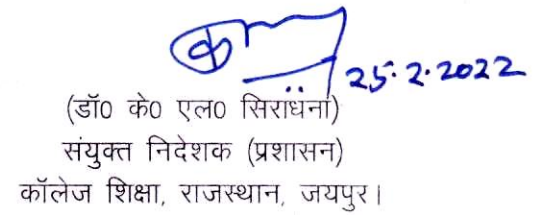 25.2.2022
(डॉ0 के0 एल0 सिराधना)
संयुक्त निदेशक (प्रशासन)
कॉलेज शिक्षा, राजस्थान, जयपुर।